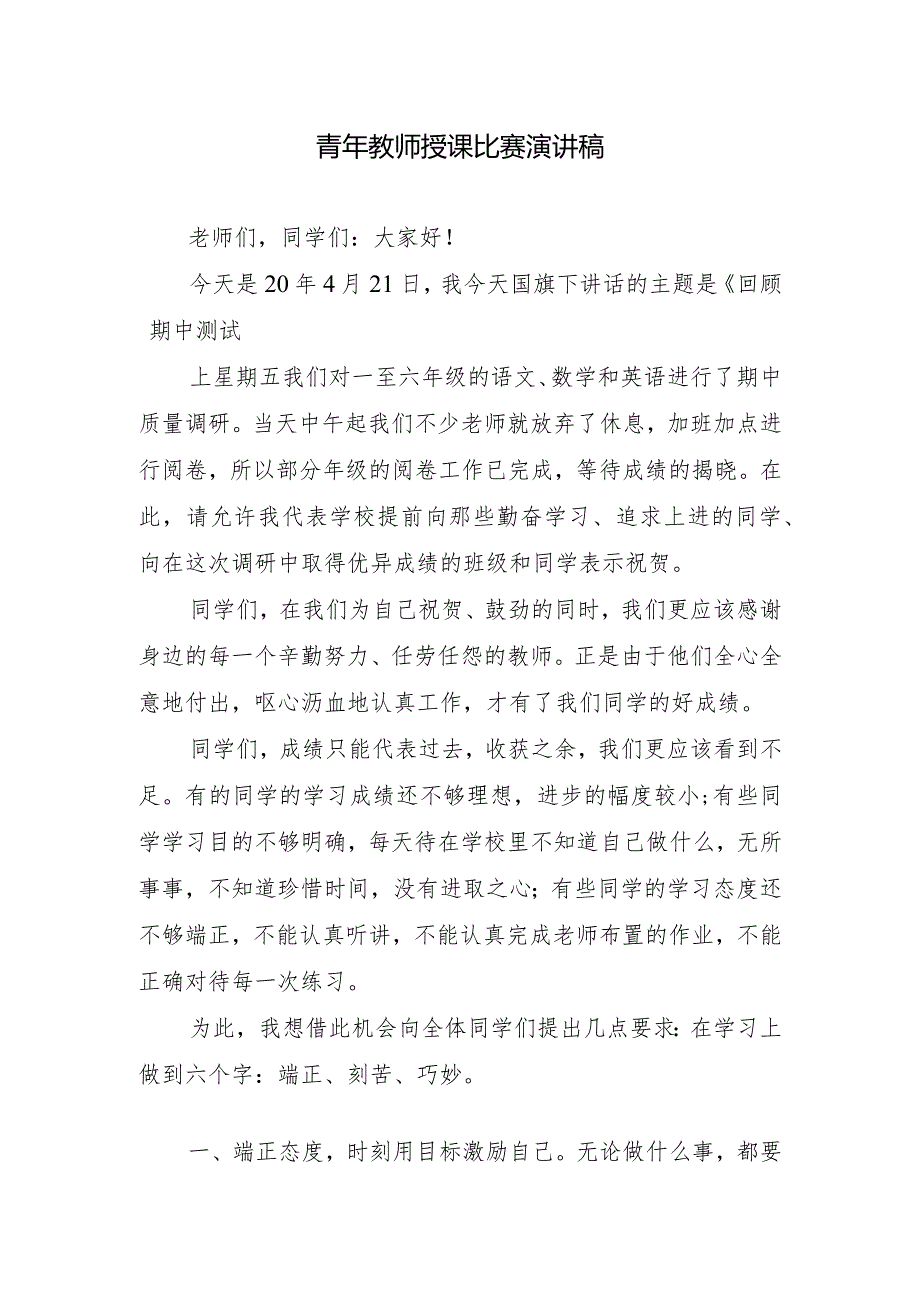 青年教师授课比赛演讲稿
老师们，同学们：大家好！
今天是20年4月21日，我今天国旗下讲话的主题是《回顾
期中测试
上星期五我们对一至六年级的语文、数学和英语进行了期中
质量调研。当天中午起我们不少老师就放弃了休息，加班加点进
行阅卷，所以部分年级的阅卷工作已完成，等待成绩的揭晓。在
此，请允许我代表学校提前向那些勤奋学习、追求上进的同学、
向在这次调研中取得优异成绩的班级和同学表示祝贺。
同学们，在我们为自己祝贺、鼓劲的同时，我们更应该感谢
身边的每一个辛勤努力、任劳任怨的教师。正是由于他们全心全
意地付出，呕心沥血地认真工作，才有了我们同学的好成绩。
同学们，成绩只能代表过去，收获之余，我们更应该看到不
足。有的同学的学习成绩还不够理想，进步的幅度较小；有些同
学学习目的不够明确，每天待在学校里不知道自己做什么，无所
事事，不知道珍惜时间，没有进取之心；有些同学的学习态度还
不够端正，不能认真听讲，不能认真完成老师布置的作业，不能
正确对待每一次练习。
为此，我想借此机会向全体同学们提出几点要求：在学习上
做到六个字：端正、刻苦、巧妙。
一、端正态度，时刻用目标激励自己。无论做什么事，都要